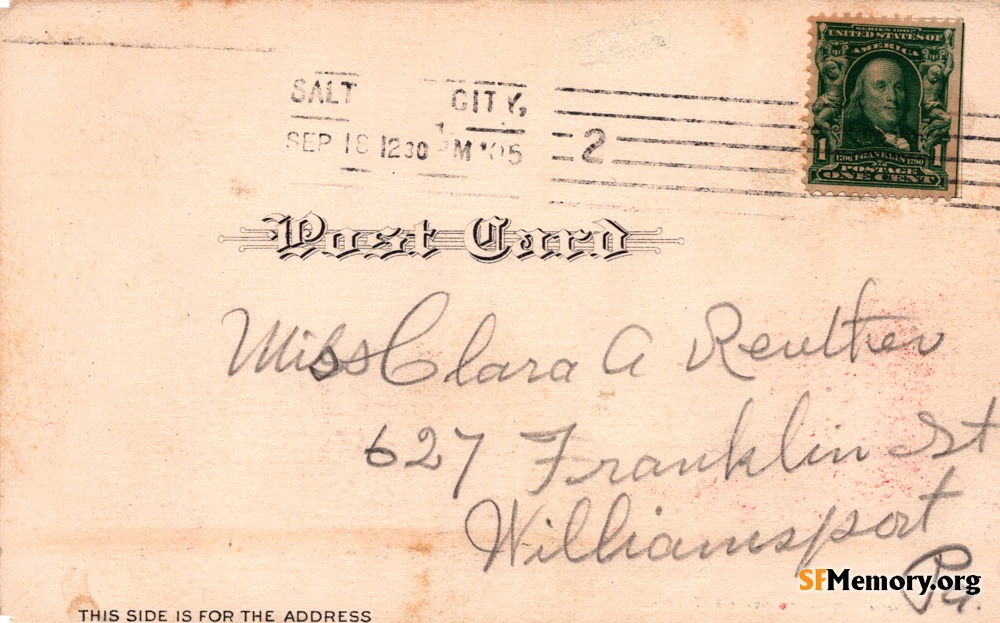 SERIES 1902
UNITED STATES OF
AMERICA
1706 FRANKLIN 1790
1 1
POSTAGE
ONE CENT
SALT CITY,
SEP 18 1230 PM '05
2
Post Card
Miss Clara A Reuther
627 Franklin St
Williamsport
Pa.
SFMemory.org
THIS SIDE IS FOR THE ADDRESS